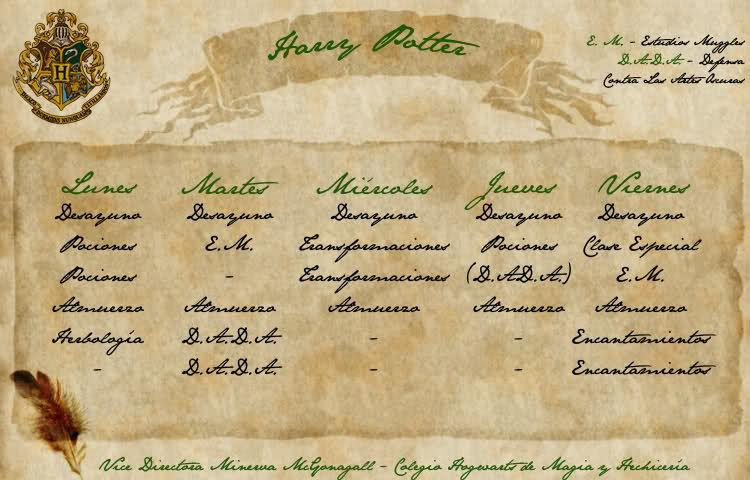 Harry Potter
E. M. - Estudios Muggles
D.A.D.A - Defensa
Contra Las Artes Oscuras
Lunes Martes Miércoles Jueves Viernes
Desayuno Desayuno Desayuno Desayuno Desayuno
Pociones E.M. Transformaciones Pociones Clase Especial
Pociones - Transformaciones (D.A.D.A.) E.M.
Almuerzo Almuerzo Almuerzo Almuerzo Almuerzo
Herbología D.A.D.A. - - Encantamientos
- D.A.D.A. - - Encantamientos
Vice Directora Minerva McGonagall - Colegio Hogwarts de Magia y Hechicería